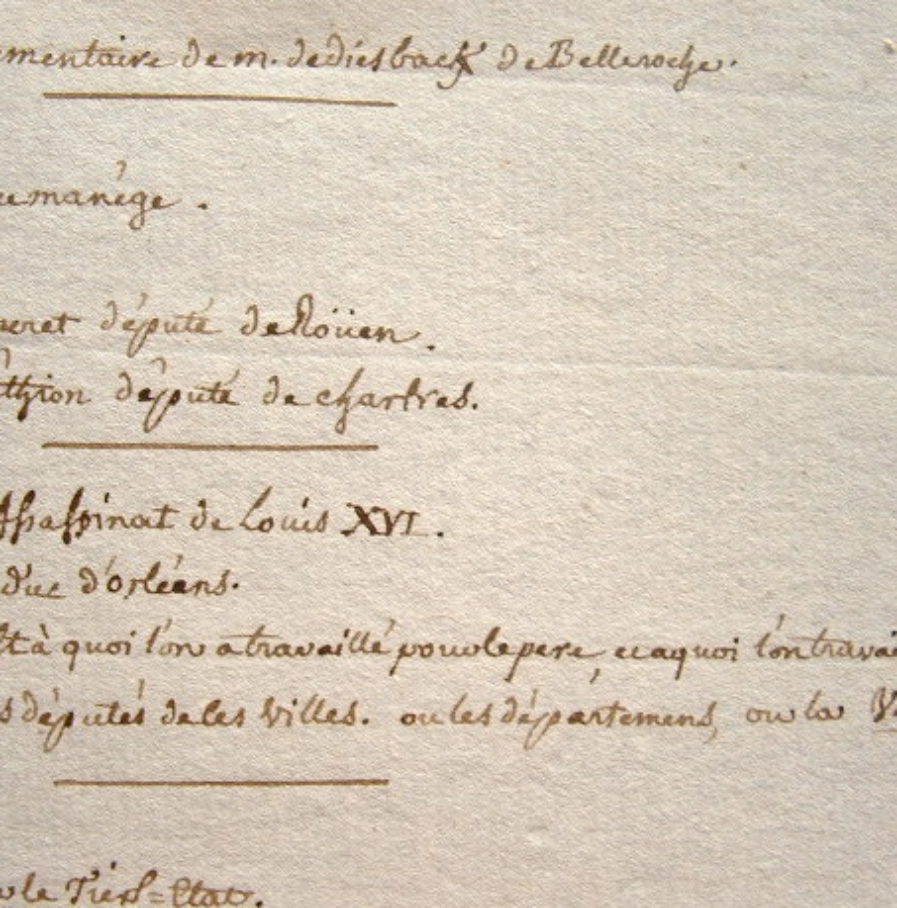 mentaire de m. de diesback de Belleroche.
manège.
député de Roüen.
thion député de chartres.
assassinat de Louis XVI.
duc d'orléans.
à quoi l'on a travaillé pour le pere, et a quoi l'on travai
s députés de les villes. ou les départemens, ou la
le Tiers=Etat.